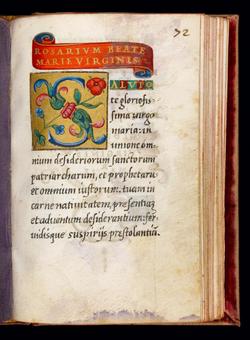 72
ROSARIVM BEATE
MARIE VIRGINIS
SALVTO
te gloriosis-
sima virgo
maria: in
unione om-
nium desideriorum sanctorum
patriarcharum, et prophetarū
et omnium iustorum, tuam in
carne nativitatem, presentiaq
et adventum desiderantium: fer-
vidisque suspirijs prestolantiū.